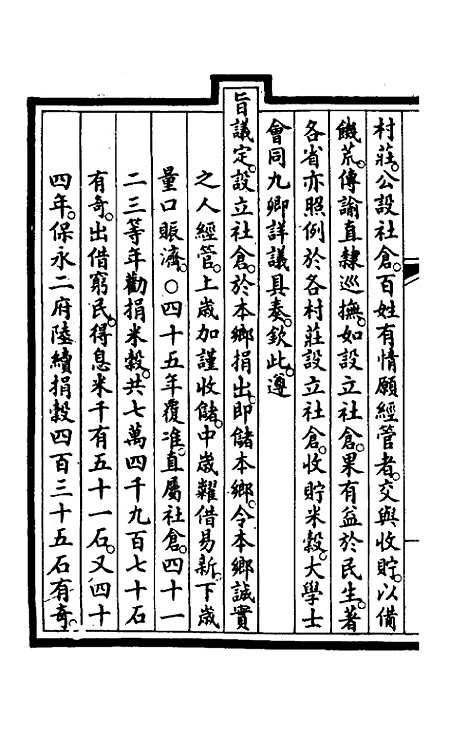 村莊。公設社倉。百姓有情願經管者。交與收貯。以備
饑荒。傳諭直隸巡撫。如設立社倉。果有益於民生。著
各省亦照例於各村莊設立社倉。收貯米穀。大學士
會同九卿詳議具奏。欽此。遵
旨議定。設立社倉。於本鄉捐出。即儲本鄉。令本鄉誠實
之人經管。上歲加謹收儲。中歲糶借易新。下歲
量口賑濟。○四十五年覆准。直屬社倉。四十一
二三等年勸捐米穀。共七萬四千九百七十石
有奇。出借窮民。得息米千有五十一石。又四十
四年。保永二府陸續捐穀四百三十五石有奇。